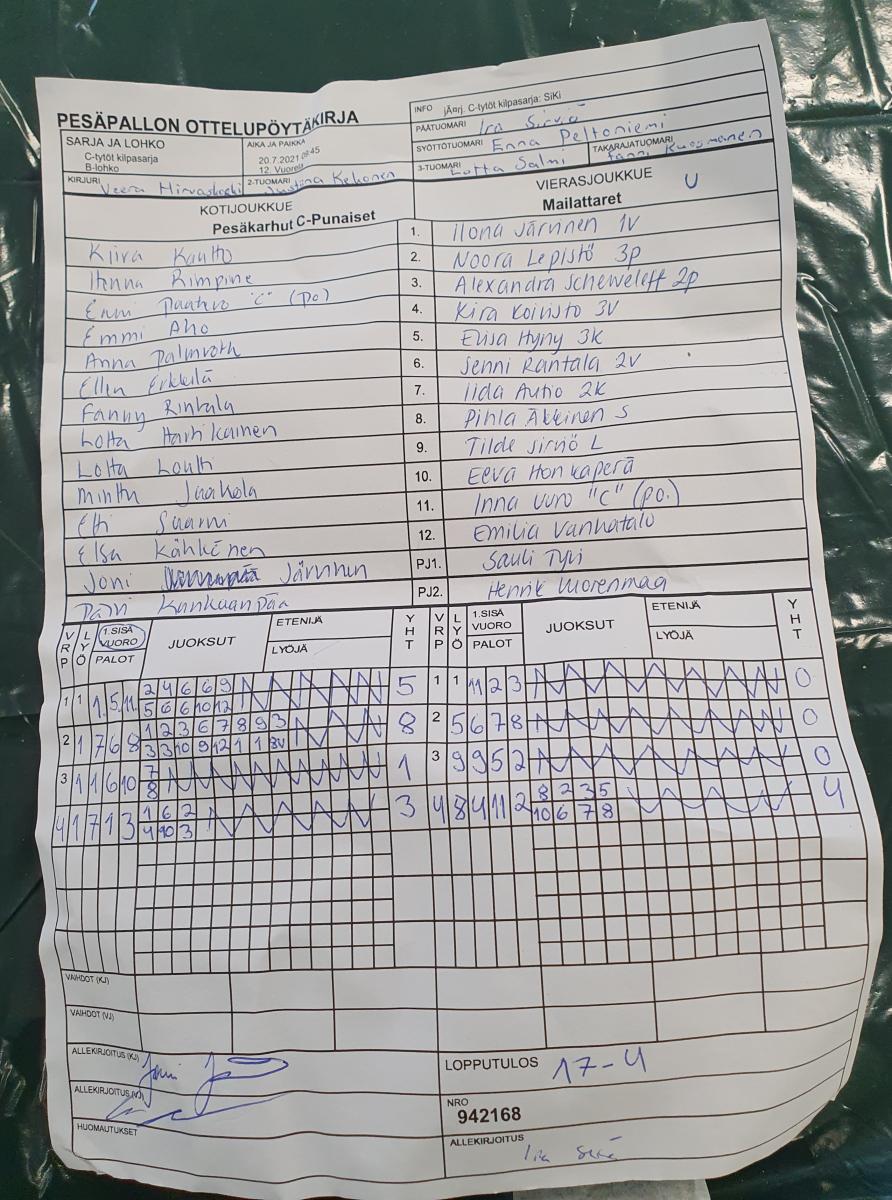 PESÄPALLON OTTELUPÖYTÄKIRJA
INFO jÄ¤rj. C-tytöt kilpasarja: SiKi
PÄÄTUOMARI Ira Sirviö
SARJA JA LOHKO
C-tytöt kilpasarja
B-lohko
AIKA JA PAIKKA
20.7.2021 08:45
12. Vuorela
SYÖTTÖTUOMARI Enna Peltoniemi
KIRJURI Veera
2-TUOMARI Kekonen
3-TUOMARI Lotta Salmi
TAKARAJATUOMARI
KOTIJOUKKUE
Pesäkarhut C-Punaiset
VIERASJOUKKUE U
Mailattaret
Kiira Kautto 1. Ilona Järvinen 1v
Rimpine 2. Noora Lepistö 3p
Enni "C" (po) 3. Alexandra Scheweleff 2p
Emmi Aho 4. Kira Koivisto 3v
Anna Palmroth 5. Elisa Hyny 3k
Ellen Erkkilä 6. Senni Rantala 2v
Fanny Rintala 7. Iida Autio 2k
Lotta Hartikainen 8. Pihla Äkkinen S
Lotta Loutti 9. Tilde Sirviö L
Minttu Jaakola 10. Eeva Honkaperä
Etti Saarni 11. Inna Vuro "C" (po.)
Elsa Kähkönen 12. Emilia Vanhatalo
Joni Järvinen PJ1. Sauli Tyvi
Päivi Kankaanpää PJ2. Henrik Vuorenmaa
VRP LYÖ 1.SISÄ VUORO PALOT JUOKSUT ETENIJÄ LYÖJÄ YHT VRP LYÖ 1.SISÄ VUORO PALOT JUOKSUT ETENIJÄ LYÖJÄ YHT
1 1 1 5 11 2 4 6 6 9 5 1 1 11 2 3 0
5 6 6 10 12
2 1 7 6 8 1 2 3 6 7 8 9 3 8 2 5 6 7 8 0
3 3 10 9 12 1 1 3v
3 1 1 6 10 7 1 3 9 9 5 2 0
8
4 1 7 1 3 1 6 2 3 4 8 4 11 2 8 2 3 5 4
4 10 3 10 6 7 8
VAIHDOT (KJ)
VAIHDOT (VJ)
ALLEKIRJOITUS (KJ) Joni
LOPPUTULOS 17-4
ALLEKIRJOITUS (VJ)
NRO
942168
HUOMAUTUKSET
ALLEKIRJOITUS
Ira